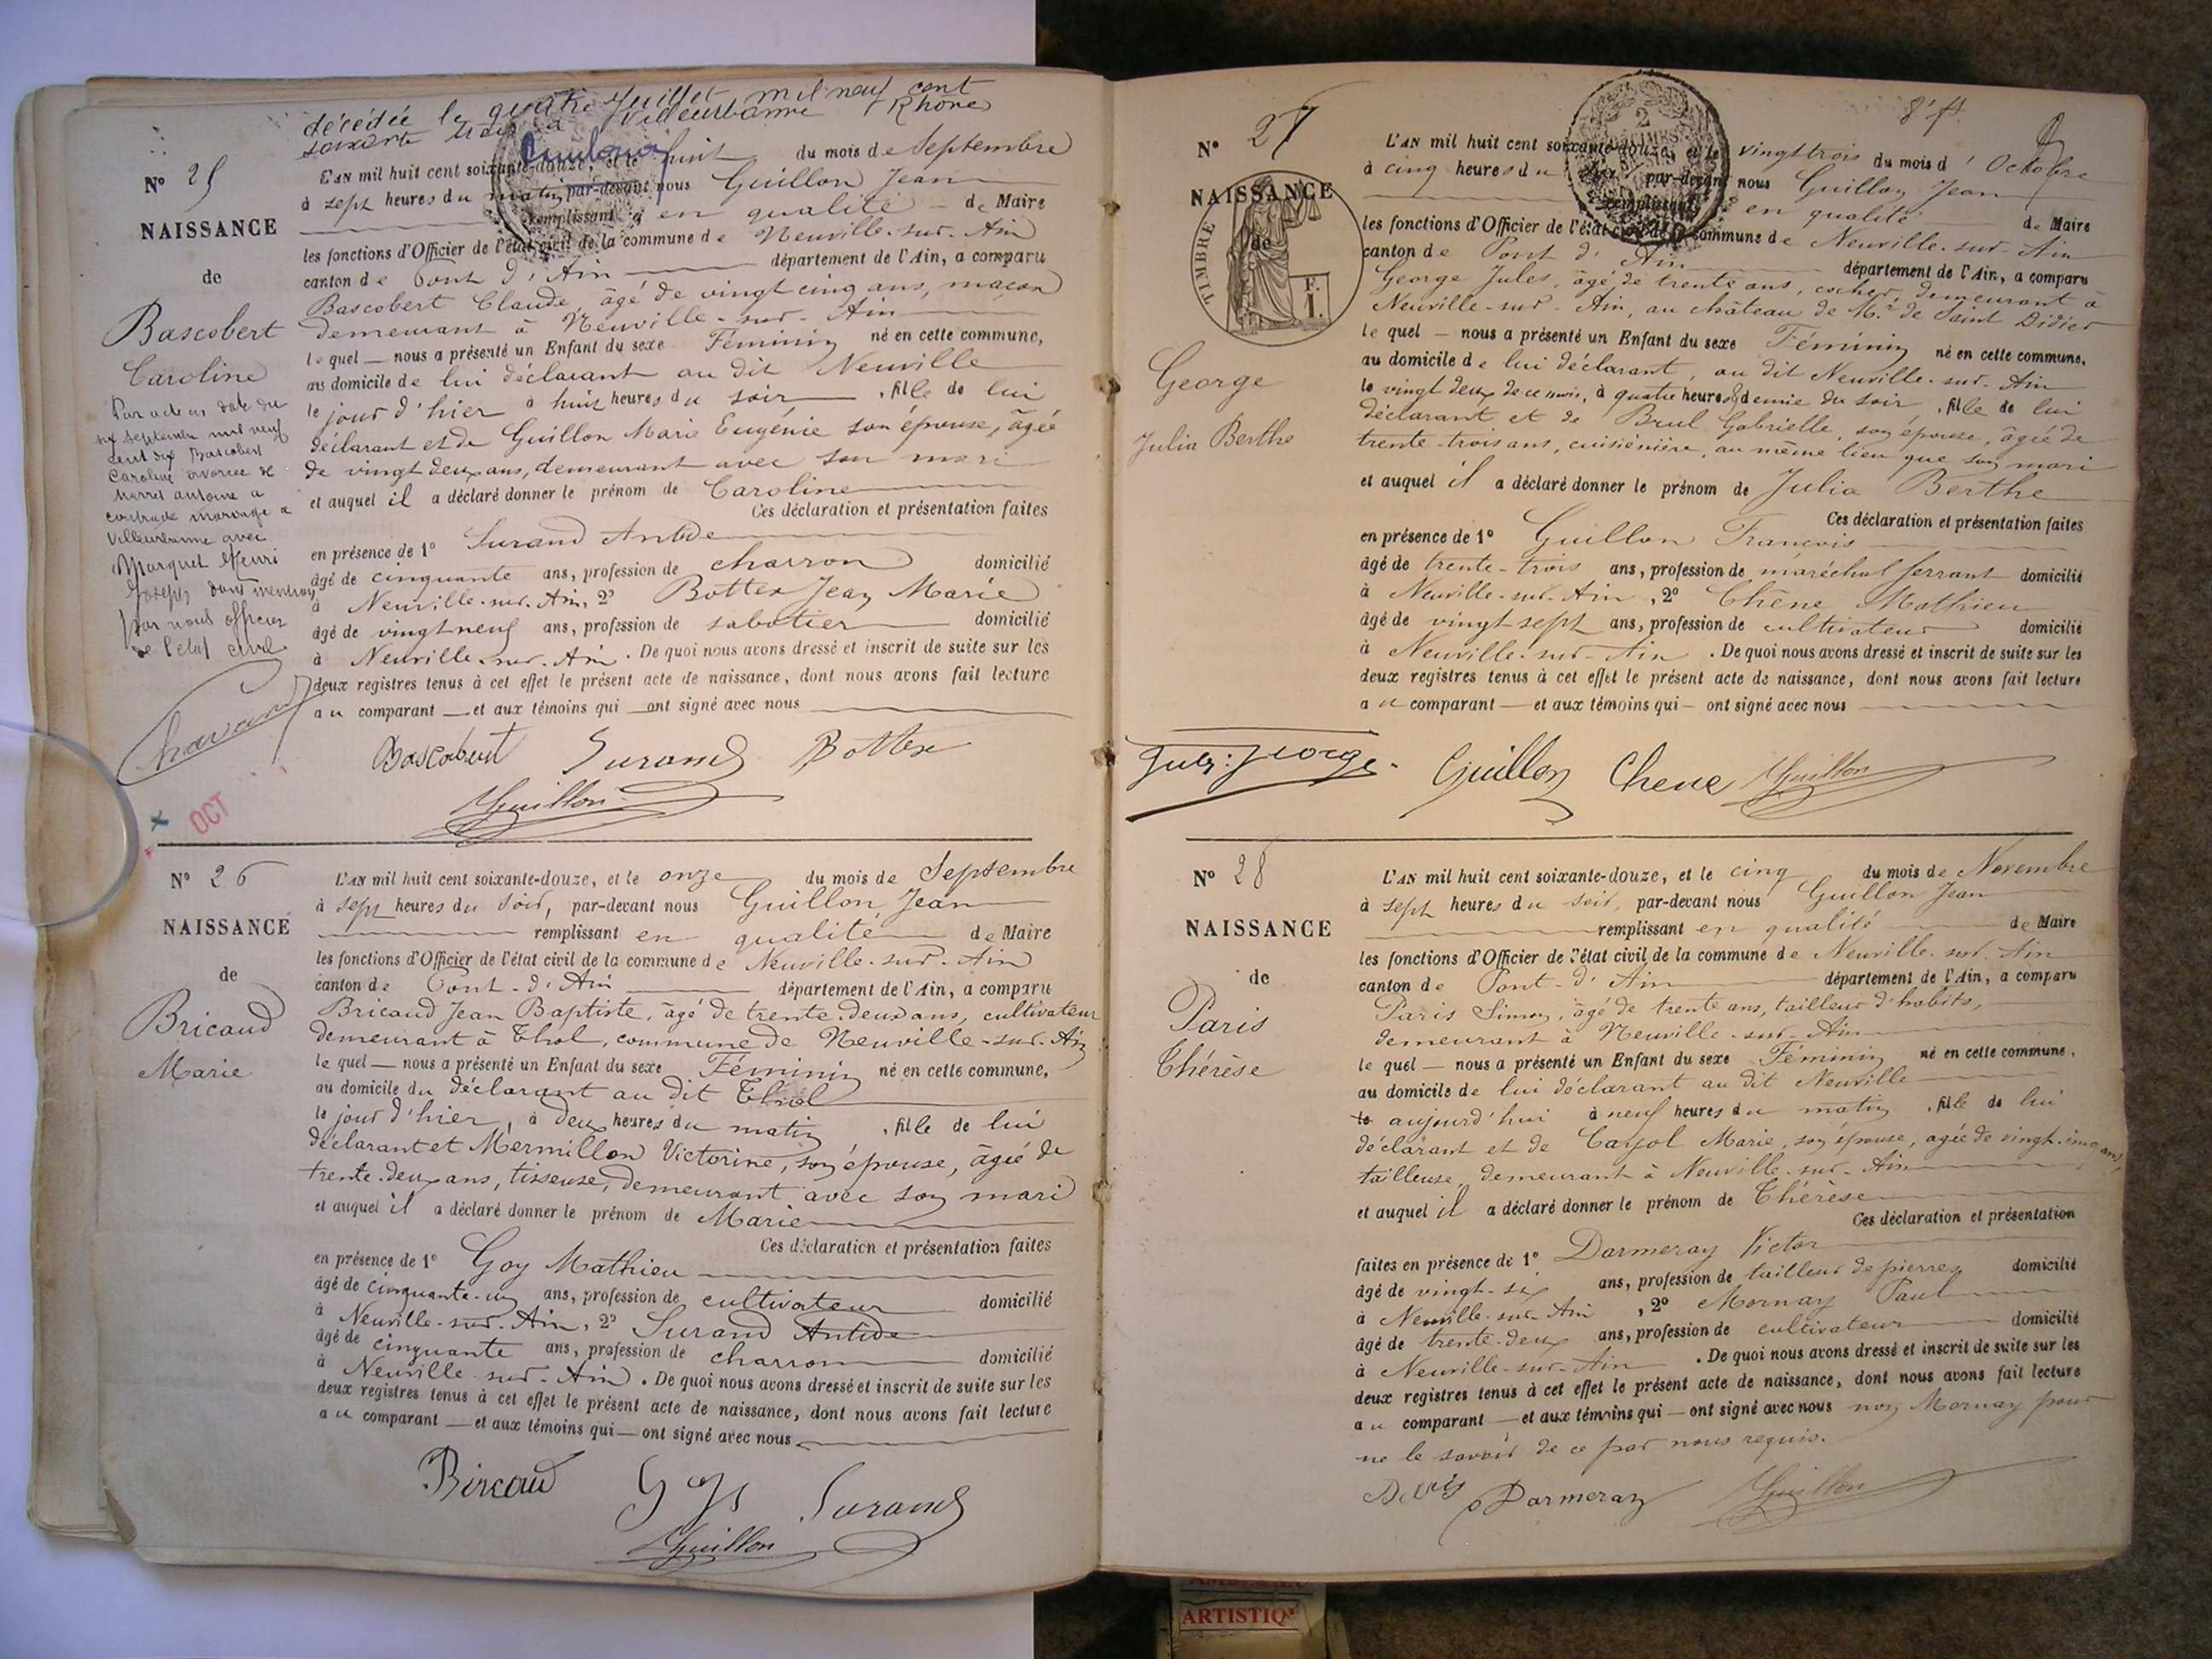 décédée le quatre Juillet mil neuf cent
soixante trois à Villeurbanne Rhône
N° 25
NAISSANCE
de
Bascobert
Caroline
Par acte en date du
six septembre mil neuf
cent dix Bascobert
Caroline divorcée de
antoine a
contracté mariage a
Villeurbanne avec
Marquet Henri
Joseph dont mention
par nous officier
de l'état civil
Chavant
L'AN mil huit cent soixante-douze, et le huit du mois de Septembre
à sept heures du matin par-devant nous Guillon Jean
remplissant en qualité de Maire
les fonctions d'Officier de l'état civil de la commune de Neuville-sur-Ain
canton de Pont d'Ain département de l'Ain, a comparu
Bascobert Claude, âgé de vingt cinq ans, maçon
demeurant à Neuville-sur-Ain
lequel — nous a présenté un Enfant du sexe Féminin né en cette commune,
au domicile de lui déclarant au dit Neuville
le jour d'hier à huit heures du soir, fille de lui
déclarant et de Guillon Marie Eugénie son épouse, âgée
de vingt deux ans, demeurant avec son mari
et auquel il a déclaré donner le prénom de Caroline
Ces déclaration et présentation faites
en présence de 1° Surand Antide
âgé de cinquante ans, profession de charron domicilié
à Neuville-sur-Ain, 2° Bottex Jean Marie
âgé de vingt neuf ans, profession de sabotier domicilié
à Neuville-sur-Ain. De quoi nous avons dressé et inscrit de suite sur les
deux registres tenus à cet effet le présent acte de naissance, dont nous avons fait lecture
au comparant — et aux témoins qui — ont signé avec nous
Bascobert Surand Bottex
JGuillon
OCT
N° 26
NAISSANCE
de
Bricaud
Marie
L'AN mil huit cent soixante-douze, et le onze du mois de Septembre
à sept heures du soir, par-devant nous Guillon Jean
remplissant en qualité de Maire
les fonctions d'Officier de l'état civil de la commune de Neuville-sur-Ain
canton de Pont-d'Ain département de l'Ain, a comparu
Bricaud Jean Baptiste, âgé de trente-deux ans, cultivateur
demeurant à Thol, commune de Neuville-sur-Ain
lequel — nous a présenté un Enfant du sexe Féminin né en cette commune,
au domicile du déclarant au dit Thol
le jour d'hier, à deux heures du matin, fille de lui
déclarant et Mermillon Victorine, son épouse, âgée de
trente-deux ans, tisseuse, demeurant avec son mari
et auquel il a déclaré donner le prénom de Marie
Ces déclaration et présentation faites
en présence de 1° Goy Mathieu
âgé de cinquante-un ans, profession de cultivateur domicilié
à Neuville-sur-Ain, 2° Surand Antide
âgé de cinquante ans, profession de charron domicilié
à Neuville-sur-Ain. De quoi nous avons dressé et inscrit de suite sur les
deux registres tenus à cet effet le présent acte de naissance, dont nous avons fait lecture
au comparant — et aux témoins qui — ont signé avec nous
Bircaud Goy Surand
JGuillon
N° 27
NAISSANCE
de
TIMBRE
F.
1.
2
George
Julia Berthe
L'AN mil huit cent soixante-douze, et le vingt trois du mois d'Octobre
à cinq heures du soir, par-devant nous Guillon Jean
remplissant en qualité de Maire
les fonctions d'Officier de l'état civil de la commune de Neuville-sur-Ain
canton de Pont d'Ain département de l'Ain, a comparu
George Jules, âgé de trente ans, cocher, demeurant à
Neuville-sur-Ain, au château de Mr. de Saint Didier
lequel — nous a présenté un Enfant du sexe Féminin né en cette commune,
au domicile de lui déclarant, au dit Neuville-sur-Ain
le vingt deux de ce mois, à quatre heures & demie du soir, fille de lui
déclarant et de Brul Gabrielle, son épouse, âgée de
trente-trois ans, cuisinière, au même lieu que son mari
et auquel il a déclaré donner le prénom de Julia Berthe
Ces déclaration et présentation faites
en présence de 1° Guillon François
âgé de trente-trois ans, profession de maréchal ferrant domicilié
à Neuville-sur-Ain, 2° Chêne Mathieu
âgé de vingt sept ans, profession de cultivateur domicilié
à Neuville-sur-Ain. De quoi nous avons dressé et inscrit de suite sur les
deux registres tenus à cet effet le présent acte de naissance, dont nous avons fait lecture
au comparant — et aux témoins qui — ont signé avec nous
Jules George Guillon Chene JGuillon
N° 28
NAISSANCE
de
Paris
Thérèse
L'AN mil huit cent soixante-douze, et le cinq du mois de Novembre
à sept heures du soir, par-devant nous Guillon Jean
remplissant en qualité de Maire
les fonctions d'Officier de l'état civil de la commune de Neuville-sur-Ain
canton de Pont-d'Ain département de l'Ain, a comparu
Paris Simon, âgé de trente ans, tailleur d'habits,
demeurant à Neuville-sur-Ain
lequel — nous a présenté un Enfant du sexe Féminin né en cette commune,
au domicile de lui déclarant au dit Neuville
le aujourd'hui à neuf heures du matin, fille de lui
déclarant et de Carjol Marie, son épouse, agée de vingt-cinq ans,
tailleuse, demeurant à Neuville-sur-Ain
et auquel il a déclaré donner le prénom de Thérèse
Ces déclaration et présentation
faites en présence de 1° Darmeray Victor
âgé de vingt-six ans, profession de tailleur de pierres domicilié
à Neuville-sur-Ain, 2° Mornay Paul
âgé de trente-deux ans, profession de cultivateur domicilié
à Neuville-sur-Ain. De quoi nous avons dressé et inscrit de suite sur les
deux registres tenus à cet effet le présent acte de naissance, dont nous avons fait lecture
au comparant — et aux témoins qui — ont signé avec nous non Mornay pour
ne le savoir de ce par nous requis.
Paris Darmeray JGuillon
ARTISTIQ